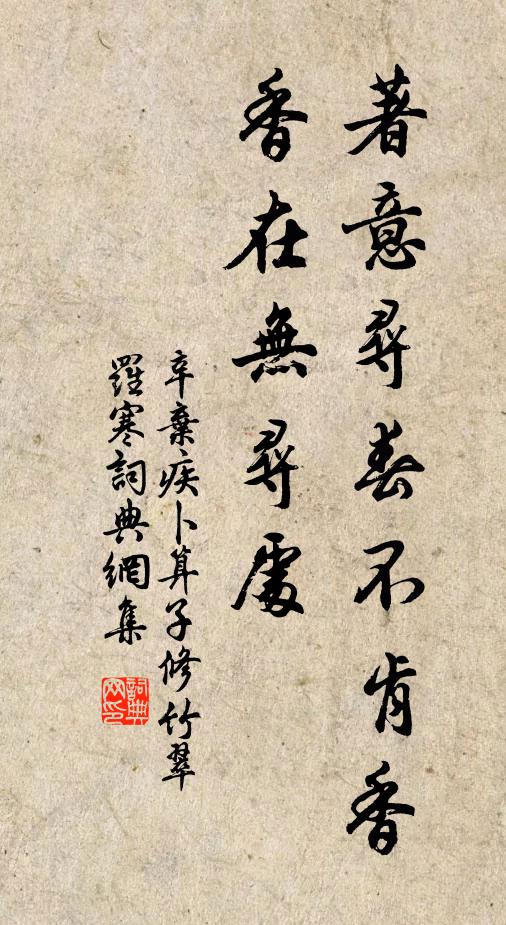 著意尋春不肯香
香在無尋處
辛棄疾卜算子修竹翠
羅寒詞典網集
詞典
网印